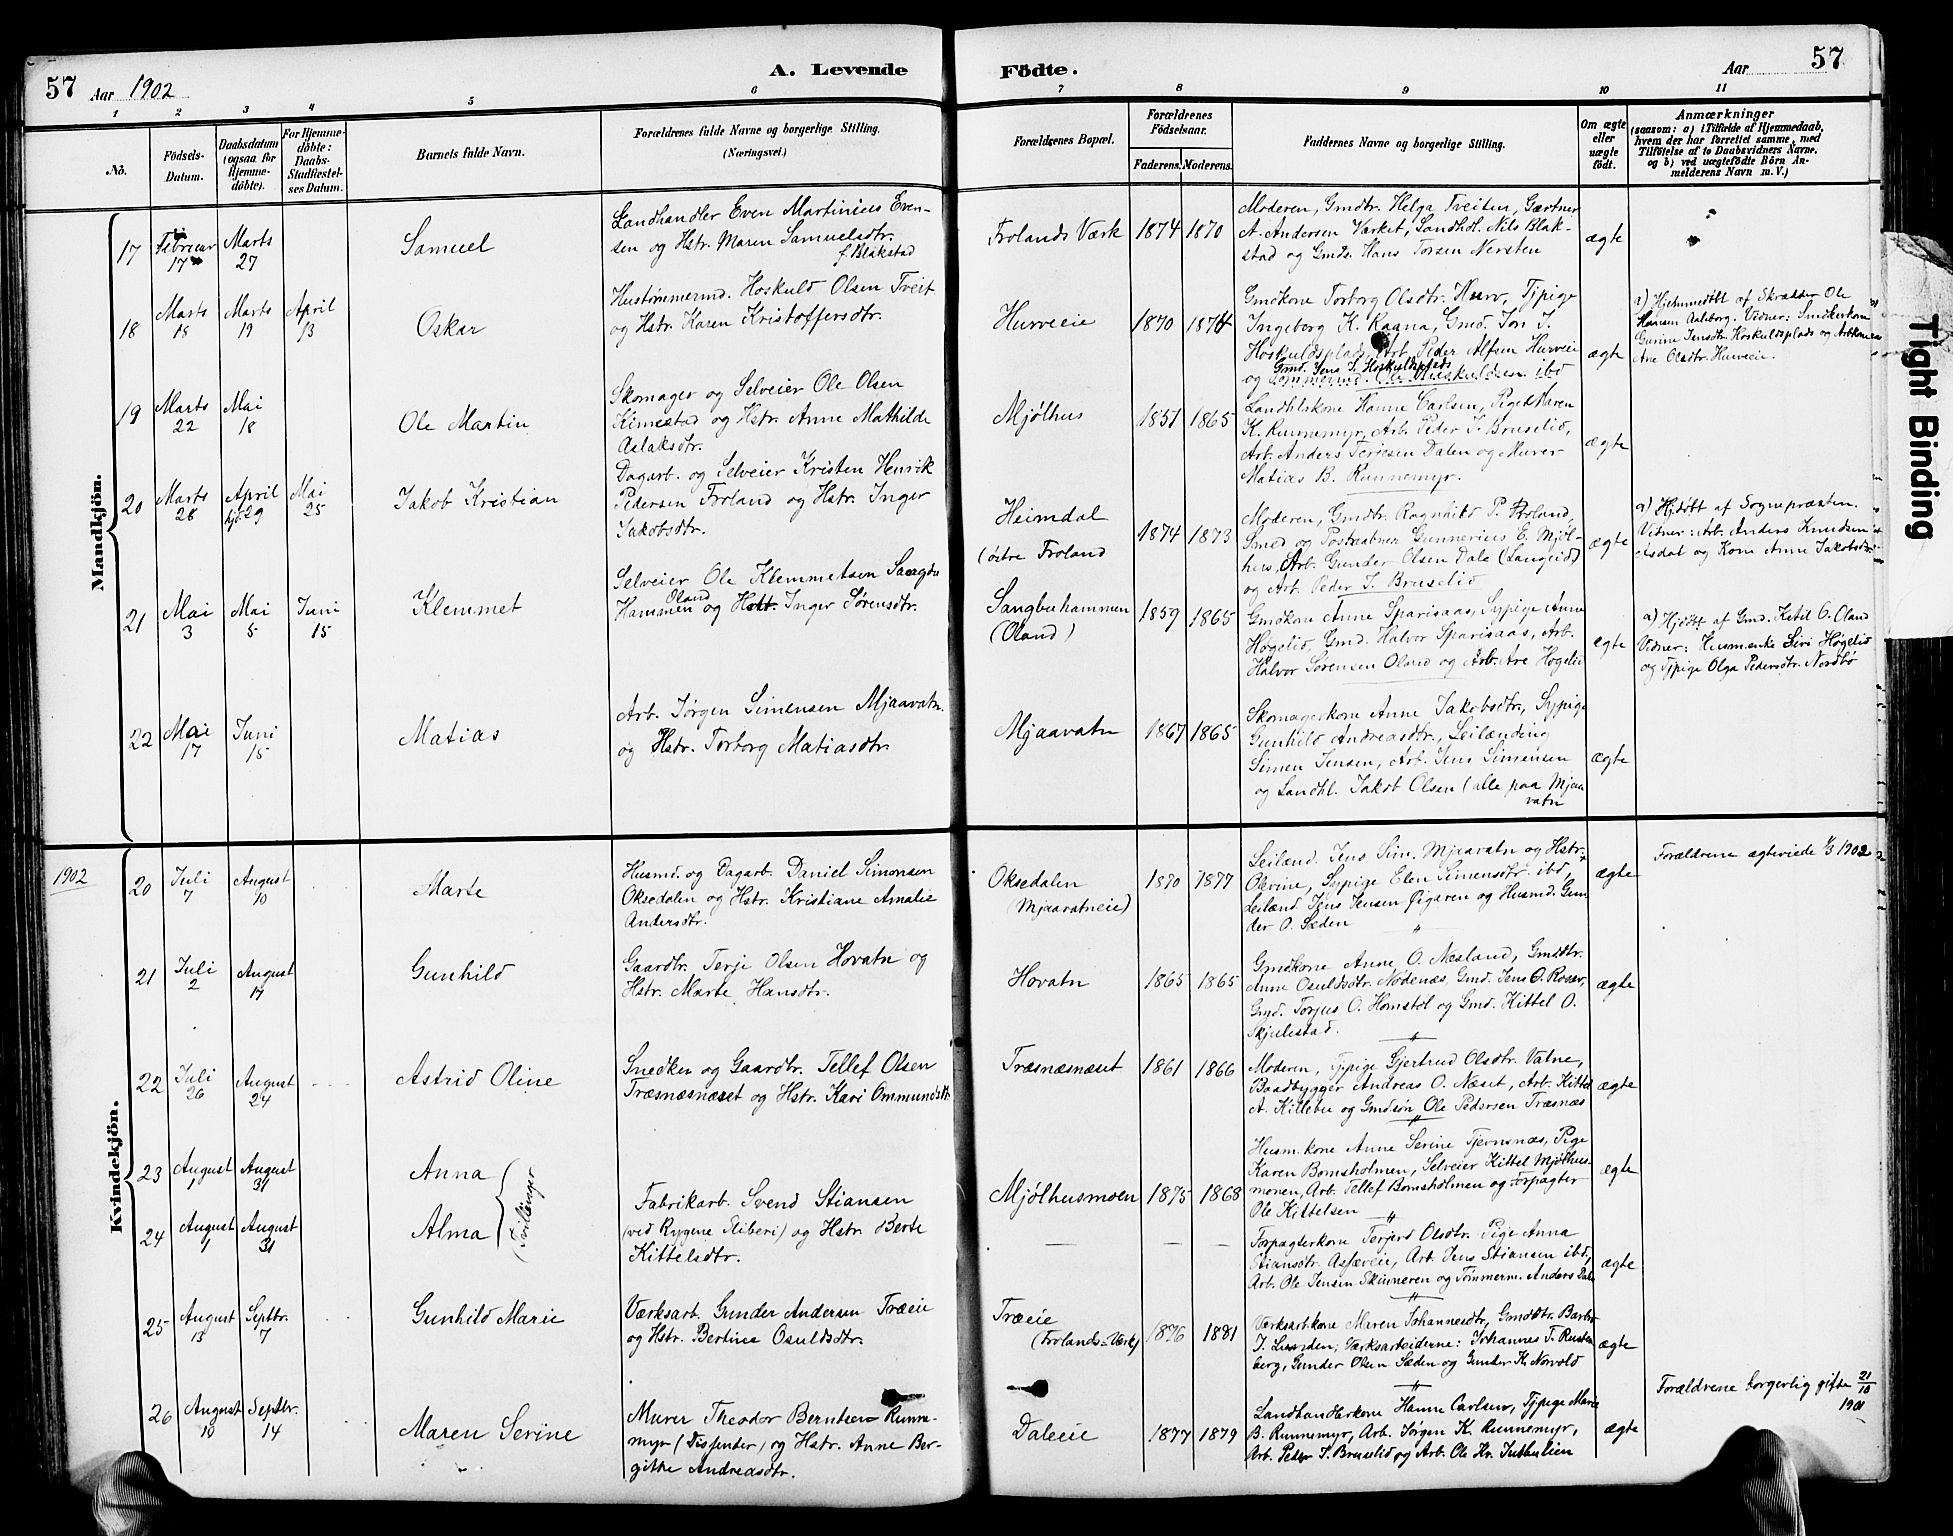 57 Aar 1902
A. Levende Födte.
Aar 57
1 2 3 4 5 6 7 8 9 10 11
No.
Födsels-
Datum.
Daabsdatum
(ogsaa for
Hjemme-
döbte).
For Hjemme-
döbte:
Daabs-
Stadfæstel-
ses Datum.
Barnets fulde Navn.
Forældrenes fulde Navne og borgerlige Stilling.
(Næringsvei.)
Forældrenes Bopæl.
Forældrenes
Födselsaar.
Faderens. Moderens.
Faddernes Navne og borgerlige Stilling.
Om ægte
eller
uægte
födt.
Anmærkninger
(saasom: a) i Tilfælde af Hjemmedaab,
hvem der har forrettet samme, med
Tilföielse af to Daabsvidners Navne,
og b) ved uægtefödte Börn An-
melderens Navn m. V.)
Mandkjön.
17
Februar
17
Marts
27
Samuel
Landhandler Even Martinius Even-
sen og Hstr. Maren Samuelsdtr.
f. Blakstad
Frolands Værk
1874 1870
Moderen, Gmdtr. Helga Tveiten, Gartner
A. Andersen Værket, Landhdl. Nils Blak-
stad og Gmds. Hans Torsen Nersten
ægte
18
Marts
18
Marts
19
April
13
Oskar
Hustømmermd. Hoskuld Olsen Tveit
og Hstr. Karen Kristoffersdtr.
Hurveie
1870 1874
Gmdkone Torborg Olsdtr. Hurv, Tjpige
Ingeborg K. Raana, Gmd. Jon J.
Hoskuldsplads, Arb. Peder Alfsen Hurveie
Gmd. Jens J. Hoskuldsplads
og Tømmermd. Ole Huskuldsen ibd
ægte
a) Hjemmedøbt af Skrædder Ole
Hansen Aalborg. Vidner: Smedkerkone
Gurine Jensdtr. Hoskuldsplads og Arbkone
Ane Olsdtr. Hurveie.
19
Marts
22
Mai
18
Ole Martin
Skomager og Selveier Ole Olsen
Kimestad og Hstr. Anne Mathilde
Aslaksdtr.
Mjølhus
1851 1865
Landhdlskone Hanne Carlsen, Pige Maren
K. Runnemyr, Arb. Peder J. Bruselid,
Arb. Anders Terjesen Dalen og Murer
Matias B. Runnemyr.
ægte
20
Marts
28
April
hjd. 29
Mai
25
Jakob Kristian
Dagarb. og Selveier Kristen Henrik
Pedersen Froland og Hstr. Inger
Jakobsdtr.
Heimdal
(østre Froland
1874 1873
Moderen, Gmdtr. Ragnhild P. Froland,
Smed og Postaabner Gunnerius E. Mjøl-
hus, Arb. Gunder Olsen Dale (Langeid)
og Arb. Peder J. Bruselid
ægte
a) Hjdøbt af Sognepræsten.
Vidner: Arb. Anders Knudsen
Asdal og Kone Anne Jakobsdtr.
21
Mai
3
Mai
5
Juni
15
Klemmet
Selveier Ole Klemmetsen Saugbu
Oland
Hammen og Hstr. Inger Sørensdtr.
Sangbuhammen
(Oland)
1859 1865
Gmdkone Anne Sparisaas, Sypige Anne
Høgelid, Gmd. Halvor Sparisaas, Arb.
Halvor Sørensen Oland og Arb. Are Høgelid
ægte
a) Hjdøbt af Gmd. Ketil O. Oland
Vidner: Husmenke Siri Høgelid
og Tjpige Olga Pedersdtr. Nordbø
22
Mai
17
Juni
15
Matias
Arb. Jørgen Simensen Mjaavatn
og Hstr. Torborg Matiasdtr.
Mjaavatn
1867 1865
Skomagerkone Anne Jakobsdtr., Sypige
Gunhild Andreasdtr., Leilænding
Simen Jensen, Arb. Jens Simensen
og Landhl. Jakob Olsen (alle paa Mjaa-
vatn
ægte
Kvindekjön.
1902
20
Juli
7
August
10
Marte
Husmd. og Dagarb. Daniel Simonsen
Oksedalen og Hstr. Kristiane Amalie
Andersdtr.
Oksedalen
(Mjaavatneie)
1870 1877
Leilænd. Jens Sim. Mjaavatn og Hstr.
Olevine, Sypige Elen Simensdtr. ibd,
Leilænd. Jens Jensen Øigaren og Husmd. Gun-
der O. Sæden
ægte
Forældrene ægteviede 1/3 1902
21
Juli
2
August
17
Gunhild
Gaardbr. Terje Olsen Hovatn og
Hstr. Marte Hansdtr.
Hovatn
1865 1865
Gmdkone Anne O. Næsland, Gmdtr.
Anne Osuldsdtr. Nødenæs, Gmd. Jens O. Rosær,
Gmd. Torjus O. Homstøl og Gmd. Kittel O.
Skjulestad.
ægte
22
Juli
26
August
24
Astrid Oline
Snedker og Gaardbr. Tellef Olsen
Træsnæsnæset og Hstr. Kari Ommundsdtr.
Træsnæsnæset
1861 1866
Moderen, Tjpige Gjertrud Olsdtr. Vatne,
Baadbygger Andreas O. Næset, Arb. Kittel
A. Killebu og Gmdsøn Ole Pedersen Træsnæs
ægte
23
August
1
August
31
Anna
(Tvillinger)
Fabrikarb. Svend Stiansen
(ved Rygene Sliberi) og Hstr. Berte
Kittelsdtr.
Mjølhusmoen
1875 1868
Husm.kone Anne Serine Tjernsnæs, Pige
Karen Bomsholmen, Selveier Kittel Mjølhus-
monen, Arb. Tellef Bomsholmen og Forpagter
Ole Kittelsen
ægte
24
August
1
August
31
Alma
Forpagterkone Terjerd Olsdtr. Pige Anna
Stiansdtr. Asfæreie, Arb. Jens Stiansen ibd.,
Arb. Ole Jensen Skinneren og Tømmerm. Anders Dale
ægte
25
August
13
Septbr.
7
Gunhild Marie
Værksarb. Gunder Andersen Træeie
og Hstr. Bertine Osuldsdtr.
Træeie
(Frolands-Værk)
1876 1881
Værksarbkone Maren Johannesdtr., Gmdttr. Barbro
J. Lunden; Værksarbeiderne: Johannes T. Rusten-
berg, Gunder Olsen Sæden og Gunder K. Norvold
ægte
26
August
10
Septbr.
14
Maren Serine
Murer Theodor Berntsen Runne-
myr (Dissenter) og Hstr. Anne Ber-
gitte Andreasdtr.
Daleie
1877 1879
Landhandlerkone Hanne Carlsen, Tjpige Marie
B. Runnemyr, Arb. Jørgen K. Runnemyr,
Arb. Peder J. Bruselid og Arb. Ole Kr. Juthulien
ægte
Forældrene borgerlig gifte 21/10
1901
Tight Binding